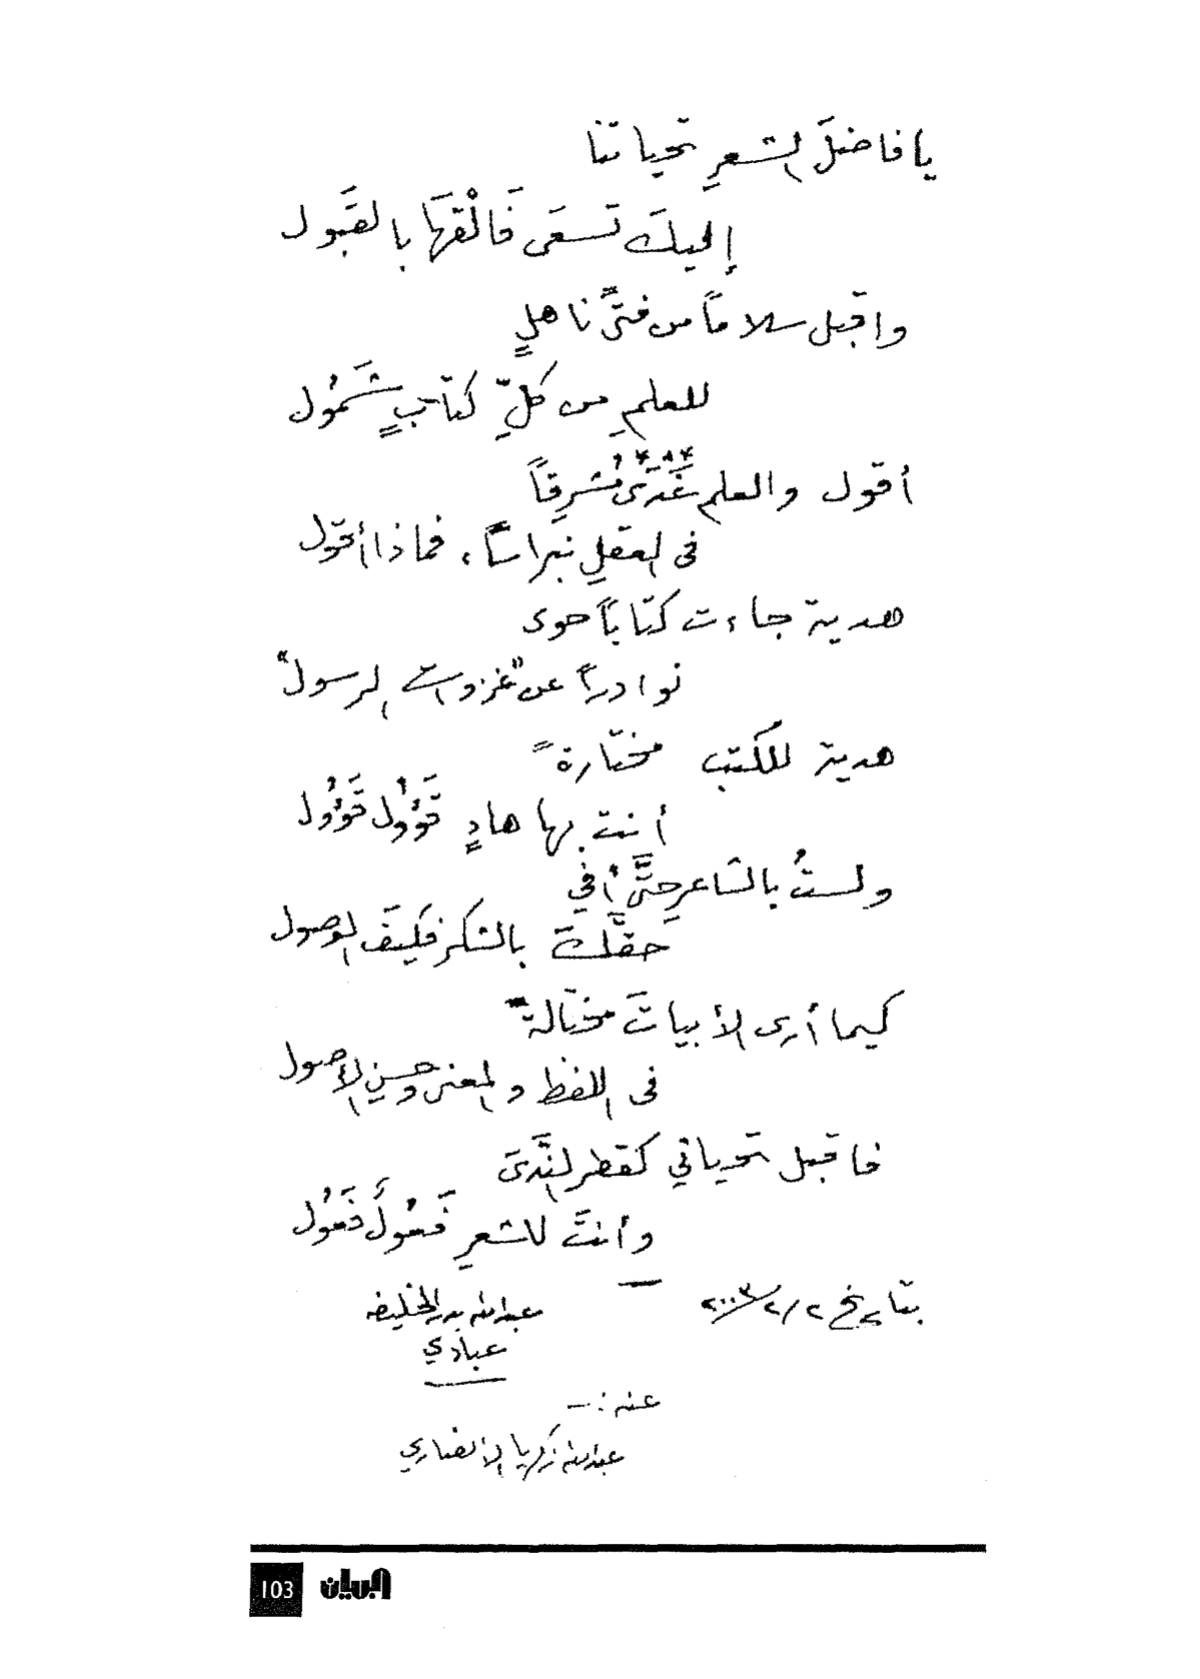 يا فاضلَ الشعرِ تحياتنا
إليكَ تَسعَى فَالْقَهَا بالقَبُول
واقبل سلاماً من فتىً ناهلٍ
للعلمِ من كلِّ كتابٍ شَمُول
أقول والعلم غَدَى مُشرِقاً
في العقلِ نبراساً، فماذا أقول
هدية جاءت كتاباً حوى
نوادراً عن "غزوات الرسول"
هدية للكتب مختارةً
أنت بها هادٍ قَؤُول قَؤُول
ولستُ بالشاعرِ حتَّى أفي
حقَّكَ بالشكر فكيفَ الوصول
كيما أرى الأبياتَ مختالةً
في اللفظ والمعنى وحسنِ الأصول
فاقبل تحياتي كقطر النَّدَى
وأنتَ للشعرِ فَعُولٌ فَعُول
بتاريخ ٢/٢/٢٠٠٣
عبدالله بدر الخليفه
عبادي
عنه :-
عبدالله زكريا الأنصاري
103 البيان